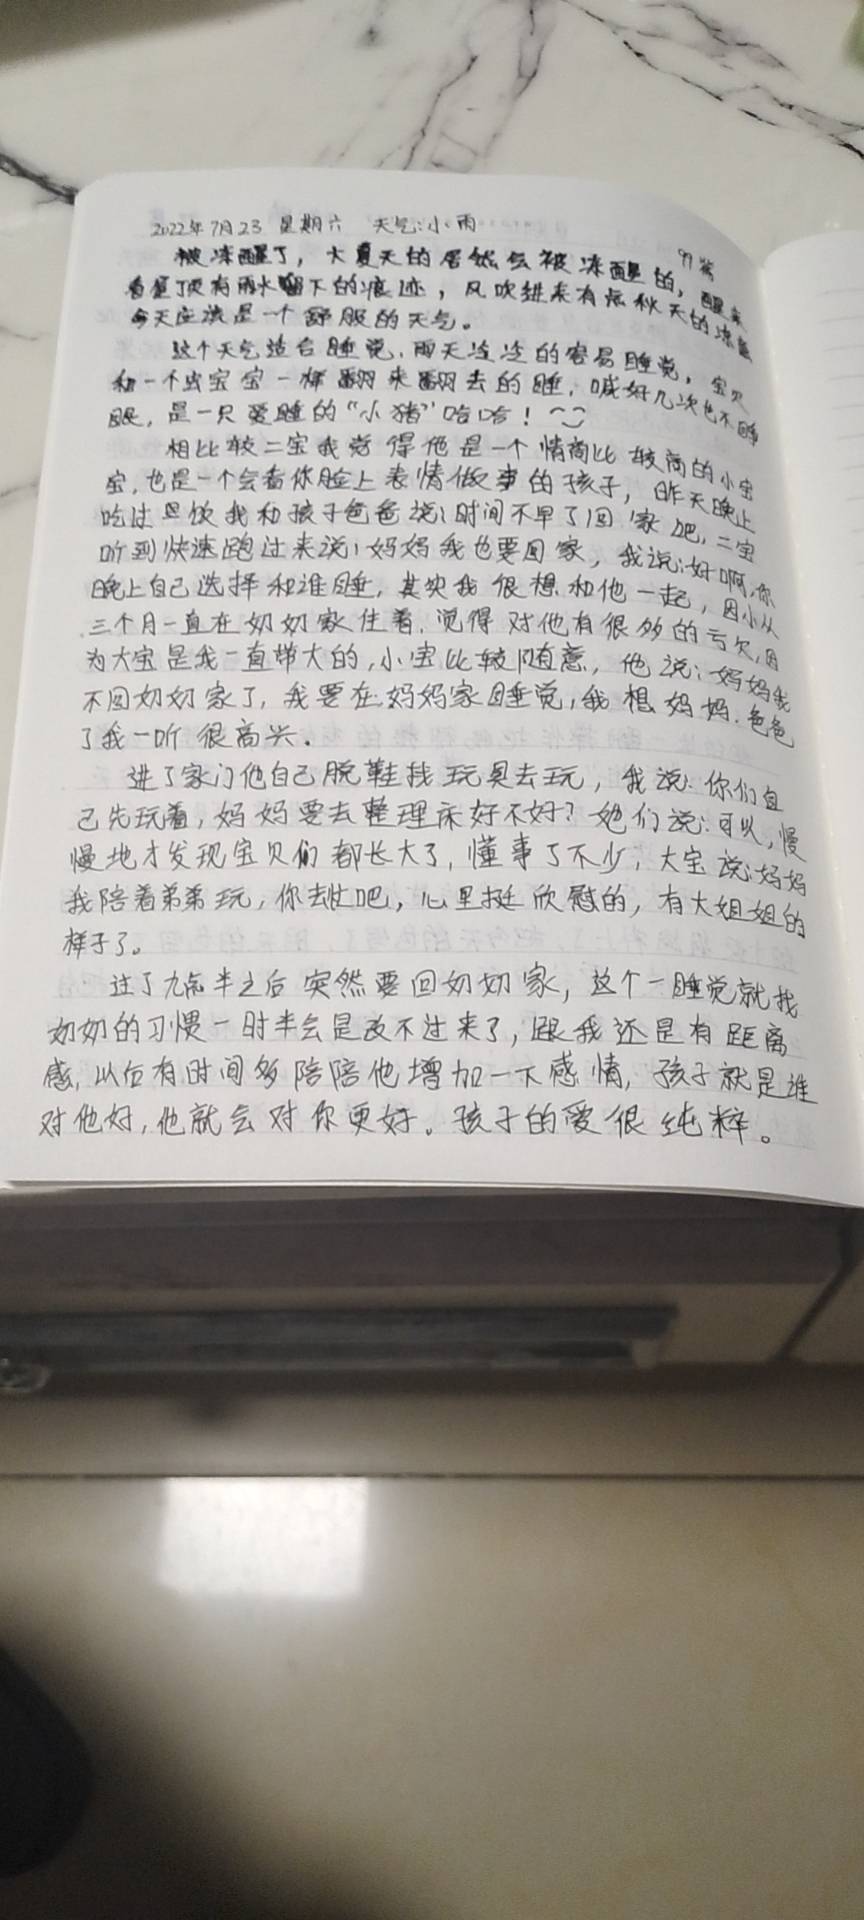 2022年7月23 星期六 天气:小雨
99篇
被冻醒了，大夏天的居然会被冻醒的，醒来
看屋顶有雨水留下的痕迹，风吹进来有点秋天的凉意
今天应该是一个舒服的天气。
这个天气适合睡觉，雨天冷冷的容易睡觉，宝贝
和一个虫宝宝一样翻来翻去的睡，喊好几次也不睁
眼，是一只爱睡的“小猪”哈哈！
相比较二宝我觉得他是一个情商比较高的小宝
宝，也是一个会看你脸上表情做事的孩子，昨天晚上
吃过晚饭我和孩子爸爸说：时间不早了回家吧，二宝
听到快速跑过来说：妈妈我也要回家，我说：好啊，你
晚上自己选择和谁睡，其实我很想和他一起，因小从
三个月一直在奶奶家住着，觉得对他有很多的亏欠，因
为大宝是我一直带大的，小宝比较随意，他说：妈妈我
不回奶奶家了，我要在妈妈家睡觉，我想妈妈.爸爸
了我一听很高兴.
进了家门他自己脱鞋找玩具去玩，我说：你们自
己先玩着，妈妈要去整理床好不好？她们说：可以，慢
慢地才发现宝贝们都长大了，懂事了不少，大宝说：妈妈
我陪着弟弟玩，你去忙吧，心里挺欣慰的，有大姐姐的
样子了。
过了九点半之后突然要回奶奶家，这个一睡觉就找
奶奶的习惯一时半会是改不过来了，跟我还是有距离
感，以后有时间多陪陪他增加一下感情，孩子就是谁
对他好，他就会对你更好。孩子的爱很纯粹。